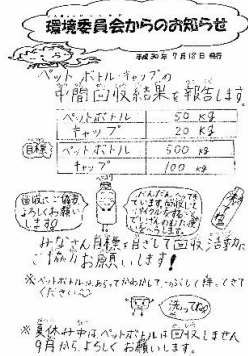 環境委員会からのお知らせ
平成30年 7月18日 発行
ペットボトル・キャップの
年間回収結果を報告します。
ペットボトル 50 Kg
キャップ 20 Kg
目標
ペットボトル 500 Kg
キャップ 100 Kg
回収にご協力
よろしくお願い
します!
みなさん目標を目ざして回収活動に
ご協力お願いします!
※ペットボトルは、あらってかわかして、つぶして持ってきて
ください
洗ってね
※夏休み中はペットボトルは回収しません
9月から、よろしくお願いします。